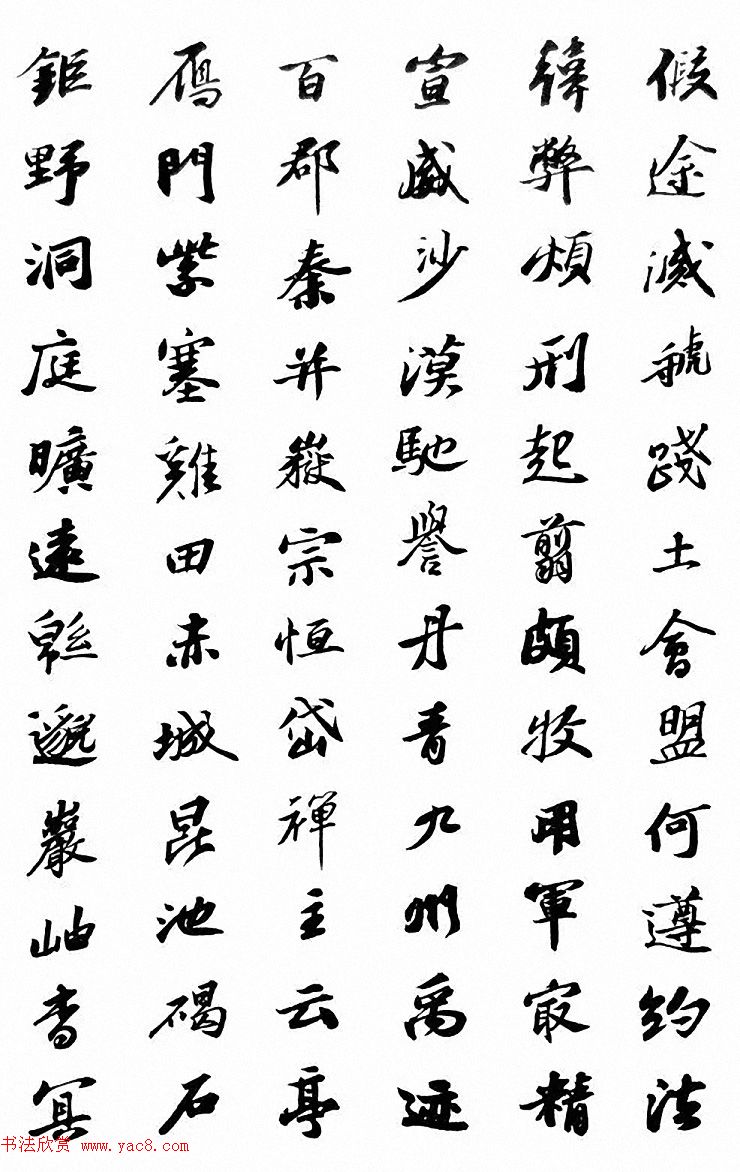 假途滅虢踐土會盟何遵約法
韓弊煩刑起翦頗牧用軍㝡精
宣威沙漠馳譽丹青九州禹迹
百郡秦并嶽宗恒岱禅主云亭
鴈門紫塞雞田赤城昆池碣石
鉅野洞庭曠遠緜邈巖岫杳冥
书法欣赏 www.yac8.com